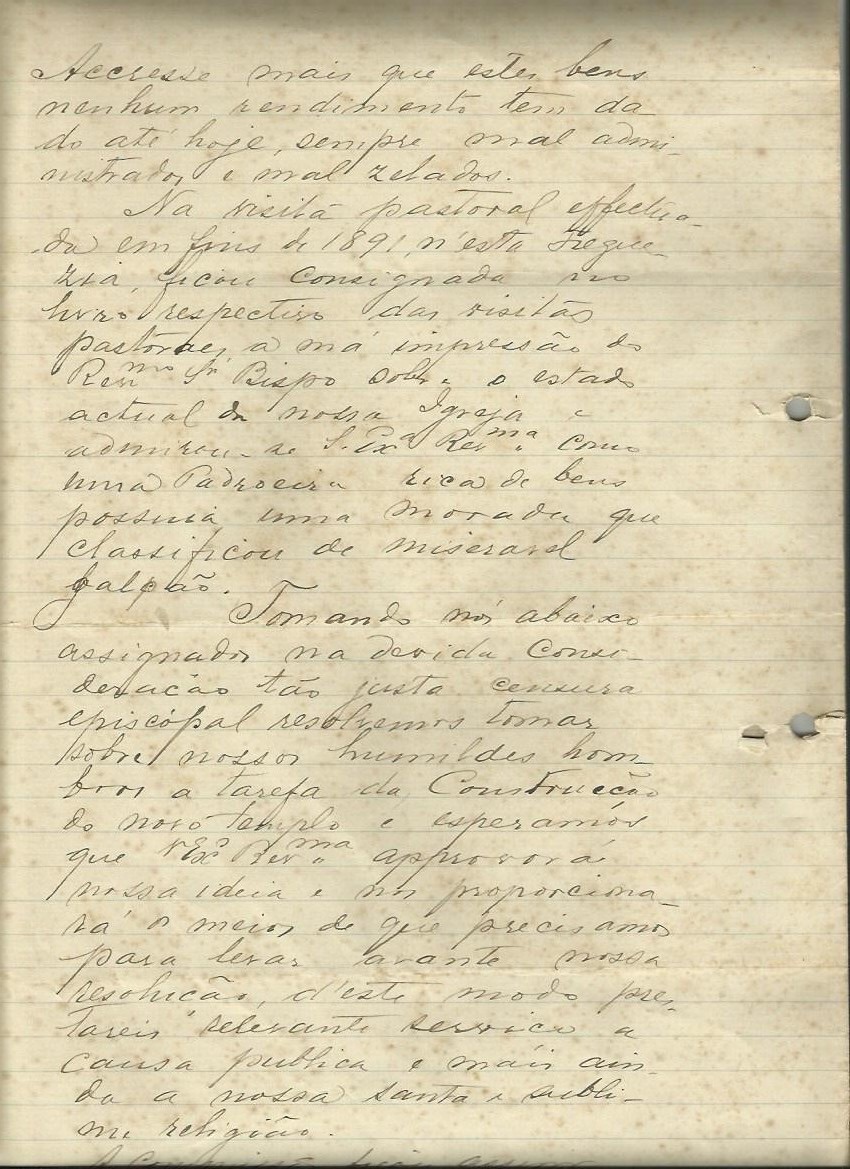 Accresse mais que estes bens
nenhum rendimento tem da
do até hoje, sempre mal admi-
nistrados e mal zelados.
Na visita pastoral effectua-
da em fins de 1891, n'esta Fregue-
zia, ficou consignada no
livro respectivo das visitas
pastoraes a má impressão do
Revmo Sr Bispo sobre o estado
actual da nossa Igreja e
admirou-se S. Exa Revma como
uma Padroeira rica de bens
possuia uma morada que
classificou de miseravel
galpão.
Tomando nós abaixo
assignados na devida consi-
deração tão justa censura
episcópal resolvemos tomar
sobre nossos humildes hom-
bros a tarefa da Construcção
do novo templo e esperamós
que VExa Revma approvará
nossa ideia e nos proporciona-
rá os meios de que precisamos
para levar avante nossa
resolução, d'este modo pres-
tareis relevante serviço a
causa publica e mais ain-
da a nossa santa e subli-
me religião.